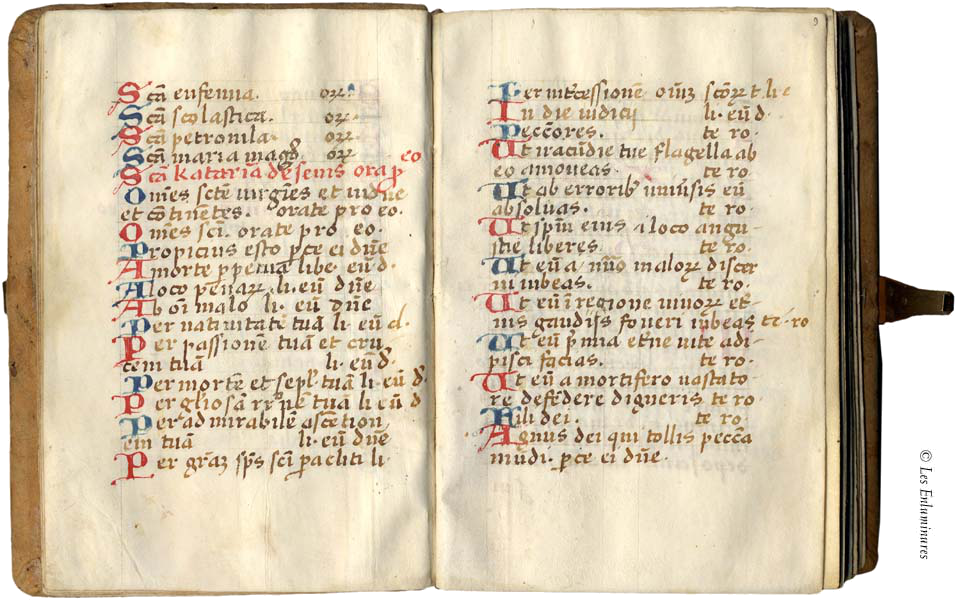 Scā eufemia. or̄.
Scā scolastica. or̄.
Scā petronila. or̄.
Scā maria magd̄. or̄
Scā kataria de senis ora p̄ eo
Omēs sctē uirgīes et uidue
et cōtinētes. orate pro eo.
Omēs scī. orate pro eo.
Propicius esto pce ei dn̄e
A morte ppetua libe. eū d̄.
A loco penar̄. li. eū dn̄e
Ab oī malo li. eū dn̄e
Per natiuitatē tuā li. eū d.
Per passionē tuam et cru
cem tuā li. eū d̄.
Per mortē et sepl. tuā li. eū d̄.
Per gliosā rr̄nē tuā li. eū d
Per admirabilē ascētion
em tuā li. eū dn̄e
Per grāz sp̄s scī pacliti li.
9
Per intcessionē oīuz scōr̄ t. li e
In die iudicij li. eū d.
Peccōres. te ro.
Ut iracūdie tue flagella ab
eo amoueas. te ro.
Ut ab erroribꝰ uniūsis eū
absoluas. te ro.
Ut sp̄m eius a loco angu-
stie liberes. te ro.
Ut eū a nūo malor̄ discer
ni iubeas. te ro.
Ut eū ī regione uiuor̄ et-
nis gaudijs foueri iubeas te. ro
Ut eū pmia etne uite adi-
pisci facias. te ro.
Ut eū a mortifero uastato-
re defēdere digneris te ro.
Fili dei. te ro.
Agnus dei qui tollis pecca
mūdi. pce ei dn̄e.
© Les Enluminures